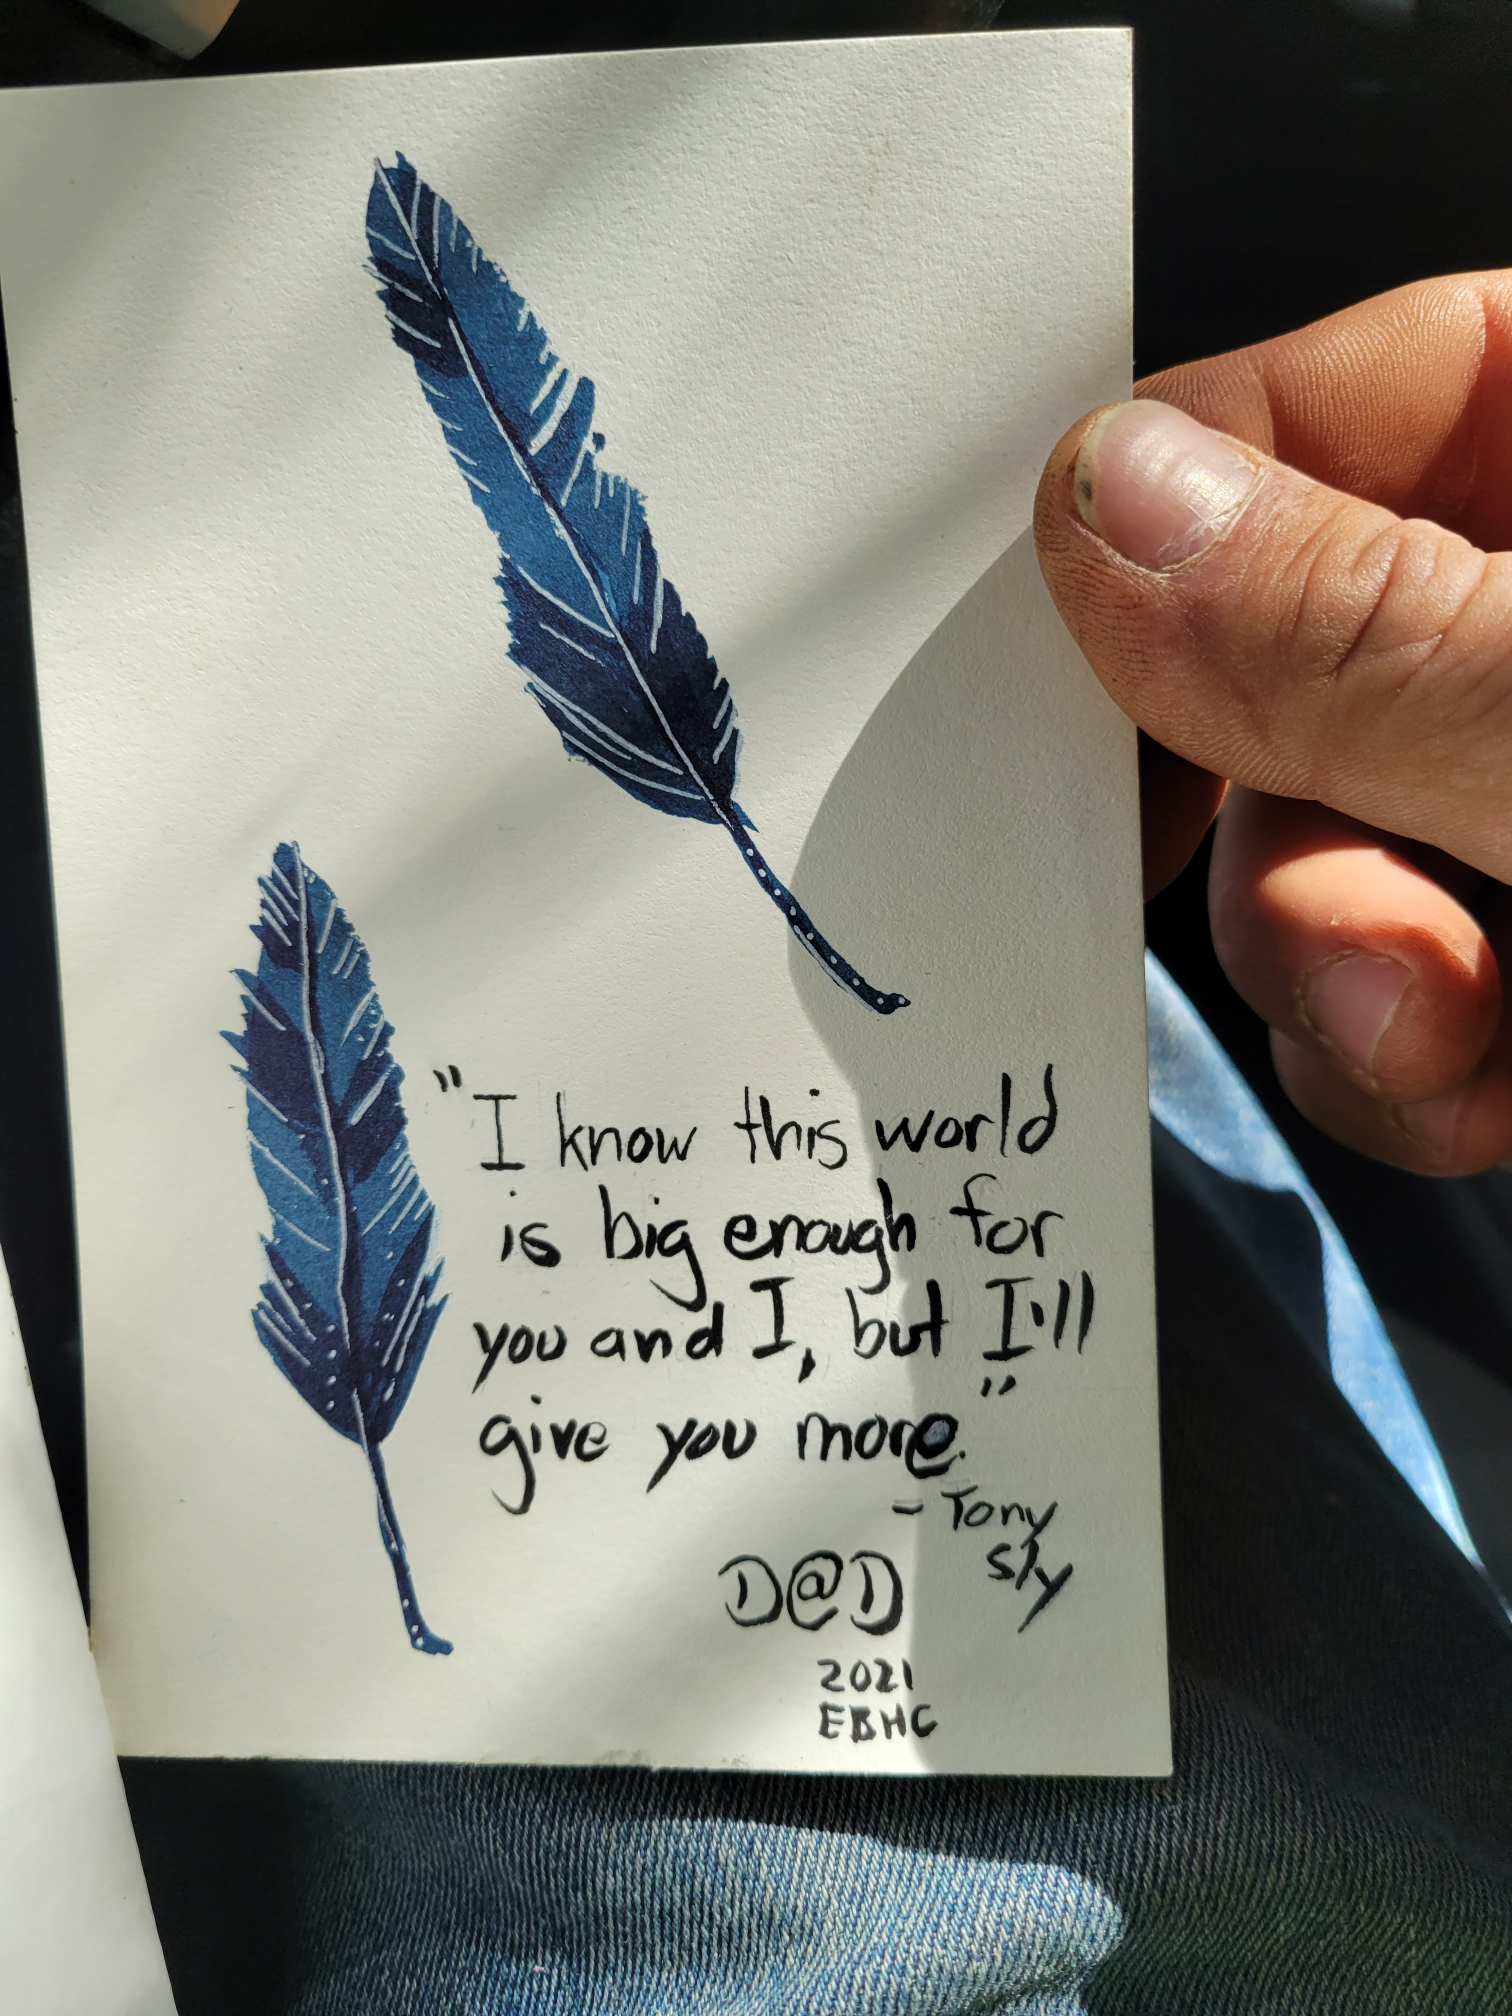 "I know this world
is big enough for
you and I, but I'll
give you more."
- Tony
Sly
D@D
2021
EBHC